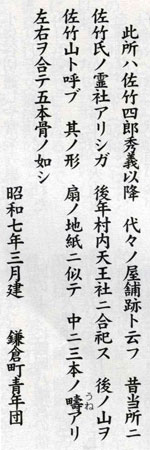 此所ハ佐竹四郎秀義以降 代々ノ屋舗跡ト云フ 昔当所ニ
佐竹氏ノ霊社アリシガ 後年村内天王社ニ合祀ス 後ノ山ヲ
佐竹山ト呼ブ 其ノ形 扇ノ地紙ニ似テ 中ニ三本ノ疇(うね)アリ
左右ヲ合テ五本骨ノ如シ
昭和七年三月建 鎌倉町青年団